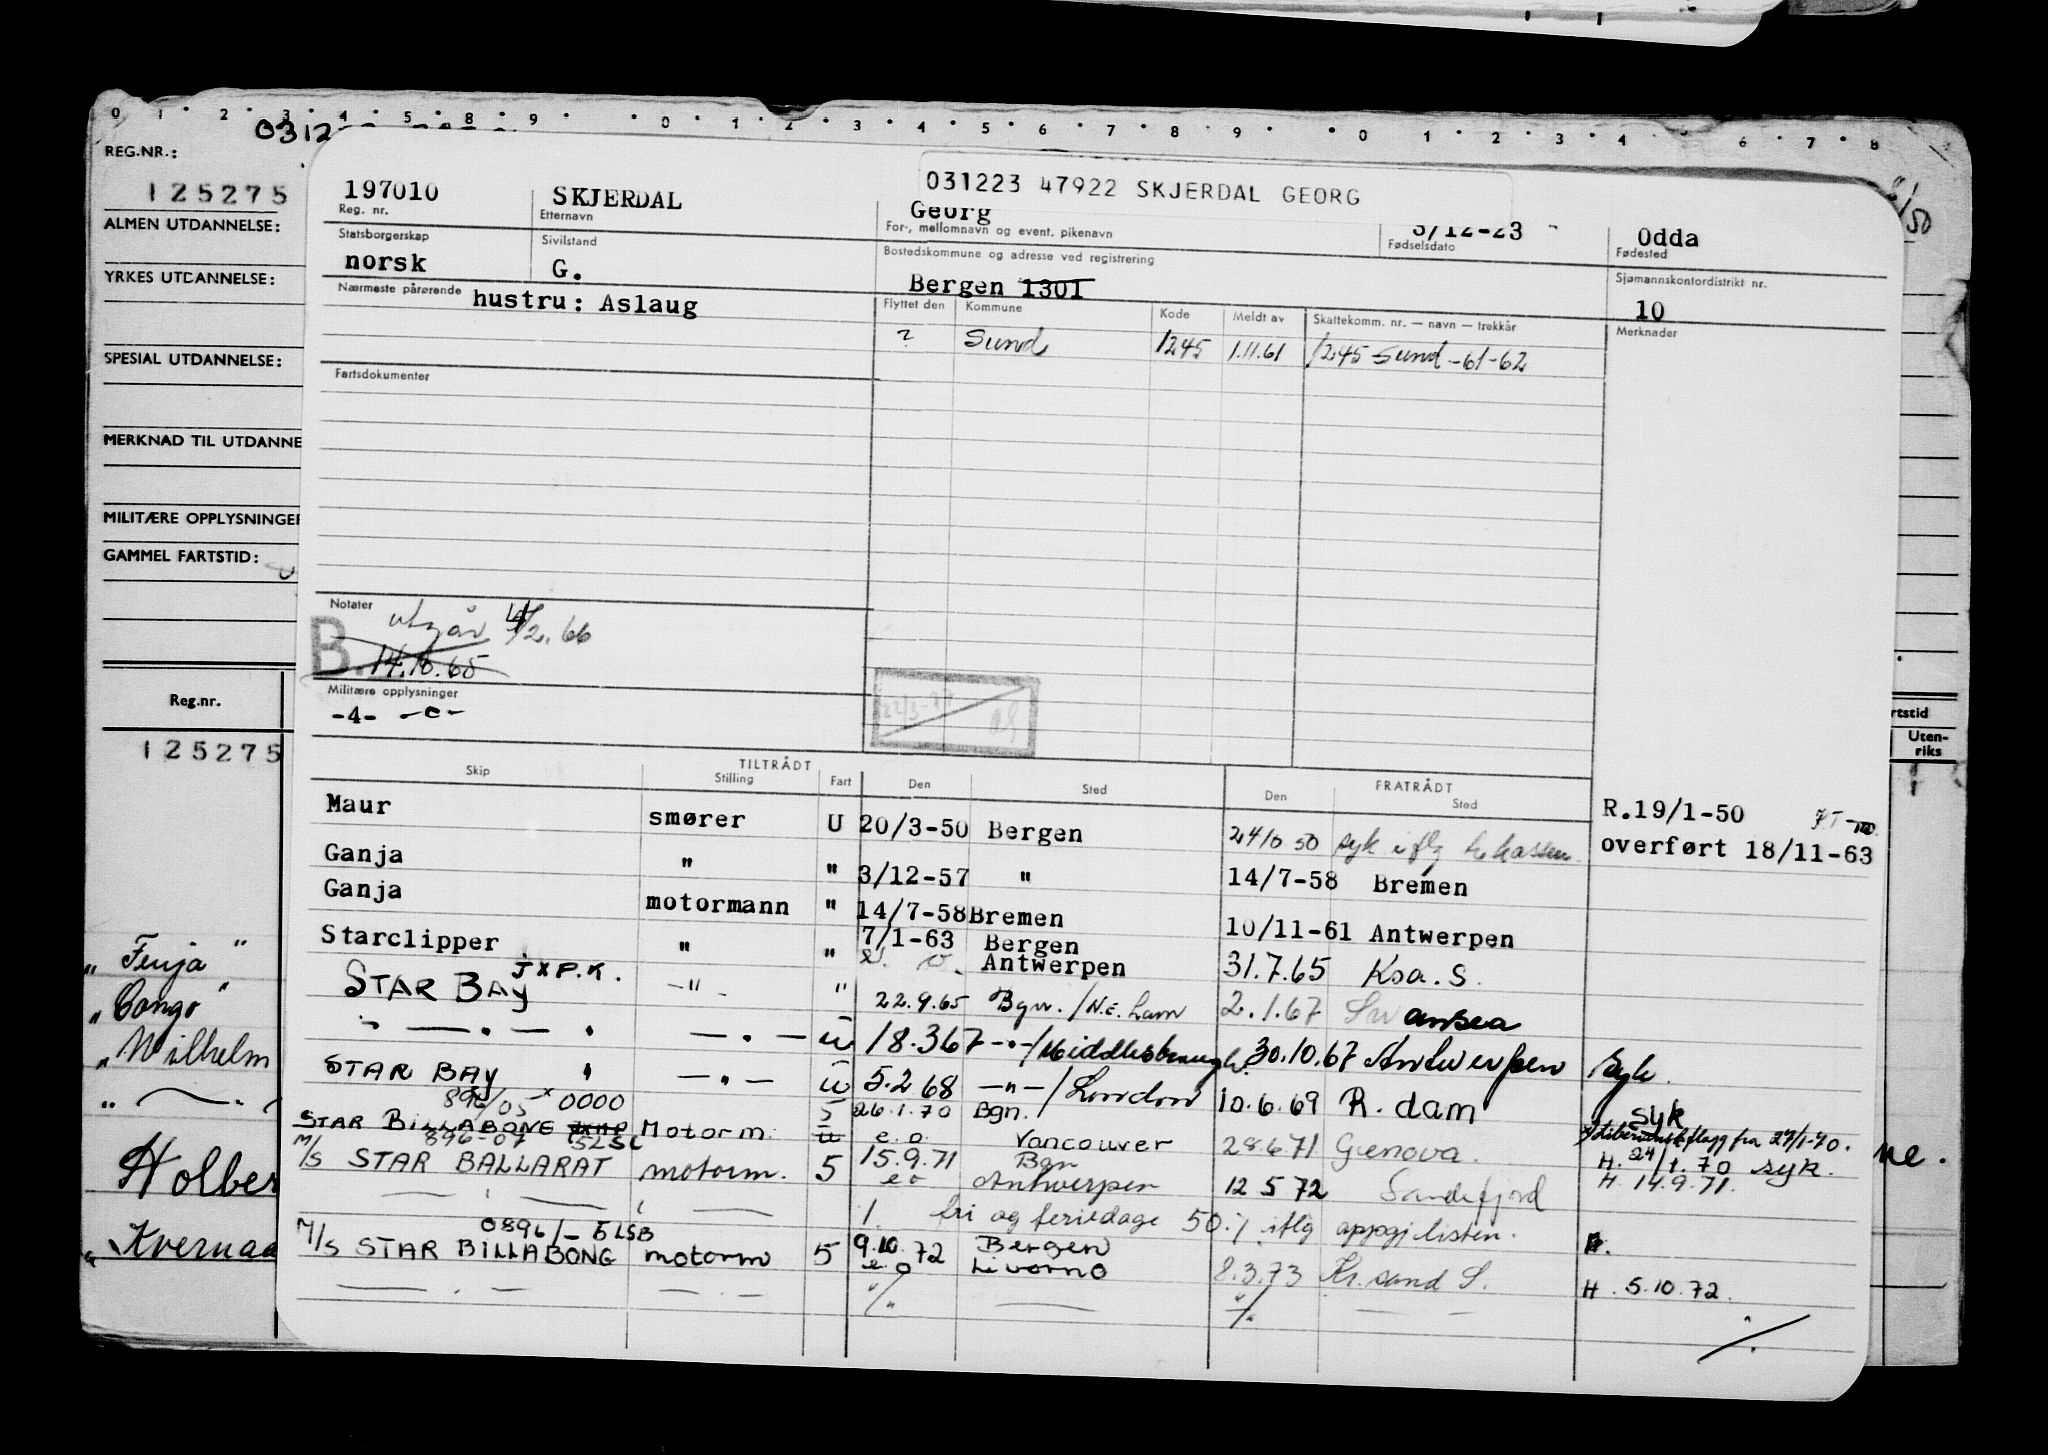 0 1 2 3 4 5 8 9 0 1 2 3 4 5 6 7 8 9 0 1 2 3 4 6 7 8
REG.NR.:
125275
ALMEN UTDANNELSE:
YRKES UTDANNELSE:
SPESIAL UTDANNELSE:
MERKNAD TIL UTDANNE
MILITÆRE OPPLYSNINGER
GAMMEL FARTSTID:
Reg.nr.
125275
„ Fenja "
„ Congo "
„ Wilhelm
Holber
„ Kvernaa
50
rtstid
Uten-
riks
ne.
031223 47922 SKJERDAL GEORG
197010 SKJERDAL Georg 3/12-23 Odda
Reg. nr. Etternavn For-, mellomnavn og event. pikenavn Fødselsdato Fødested
Statsborgerskap Sivilstand Bostedskommune og adresse ved registrering Sjømannskontordistrikt nr.
norsk G. Bergen 1301 10
Nærmeste pårørende hustru: Aslaug
Flyttet den Kommune Kode Meldt av Skattekomm. nr. — navn — trekkår Merknader
? Sund 1245 1.11.61 1245 Sund -61-62
Fartsdokumenter
Notater
utgår 4/2.66
B. 14.10.65
Militære opplysninger
-4- -c-
22/3-77
TILTRÅDT FRATRÅDT
Skip Stilling Fart Den Sted Den Sted
Maur smører U 20/3-50 Bergen 24/10 50 syk iflg R.19/1-50
overført 18/11-63
Ganja " " 3/12-57 " 14/7-58 Bremen
Ganja motormann " 14/7-58 Bremen 10/11-61 Antwerpen
Starclipper " " 7/1-63 Bergen
Antwerpen 31.7.65 Ksa. S.
STAR BAY JXPK. -"- " 22.9.65 Bgn./N.E. Ham 2.1.67 Swansea
" — " — " — " — u 18.3.67 -"-/Middlesbrough. 30.10.67 Antwerpen syk.
STAR BAY " — " — u 5.2.68 —"—/London 10.6.69 R.dam syk
896/05 x 0000
STAR BILLABONG Motorm. 5 26.1.70 Bgn.
e.o. Vancouver 28.6.71 Genova. x) Liberiansk flagg fra 27/1-70.
H. 24/1.70 syk.
896-07 5LSC
M/S STAR BALLARAT motorm. 5 15.9.71 Bgn
e.o Antwerpen 12 5 72 Sandefjord H 14.9.71.
1. fri og feriedage 50 % iflg oppgj.listen.
0896/- 5LSB
M/S STAR BILLABONG motorm 5 9.10.72 Bergen
e.o Livorno 8.3.73 Kr.sand S. H. 5.10.72.